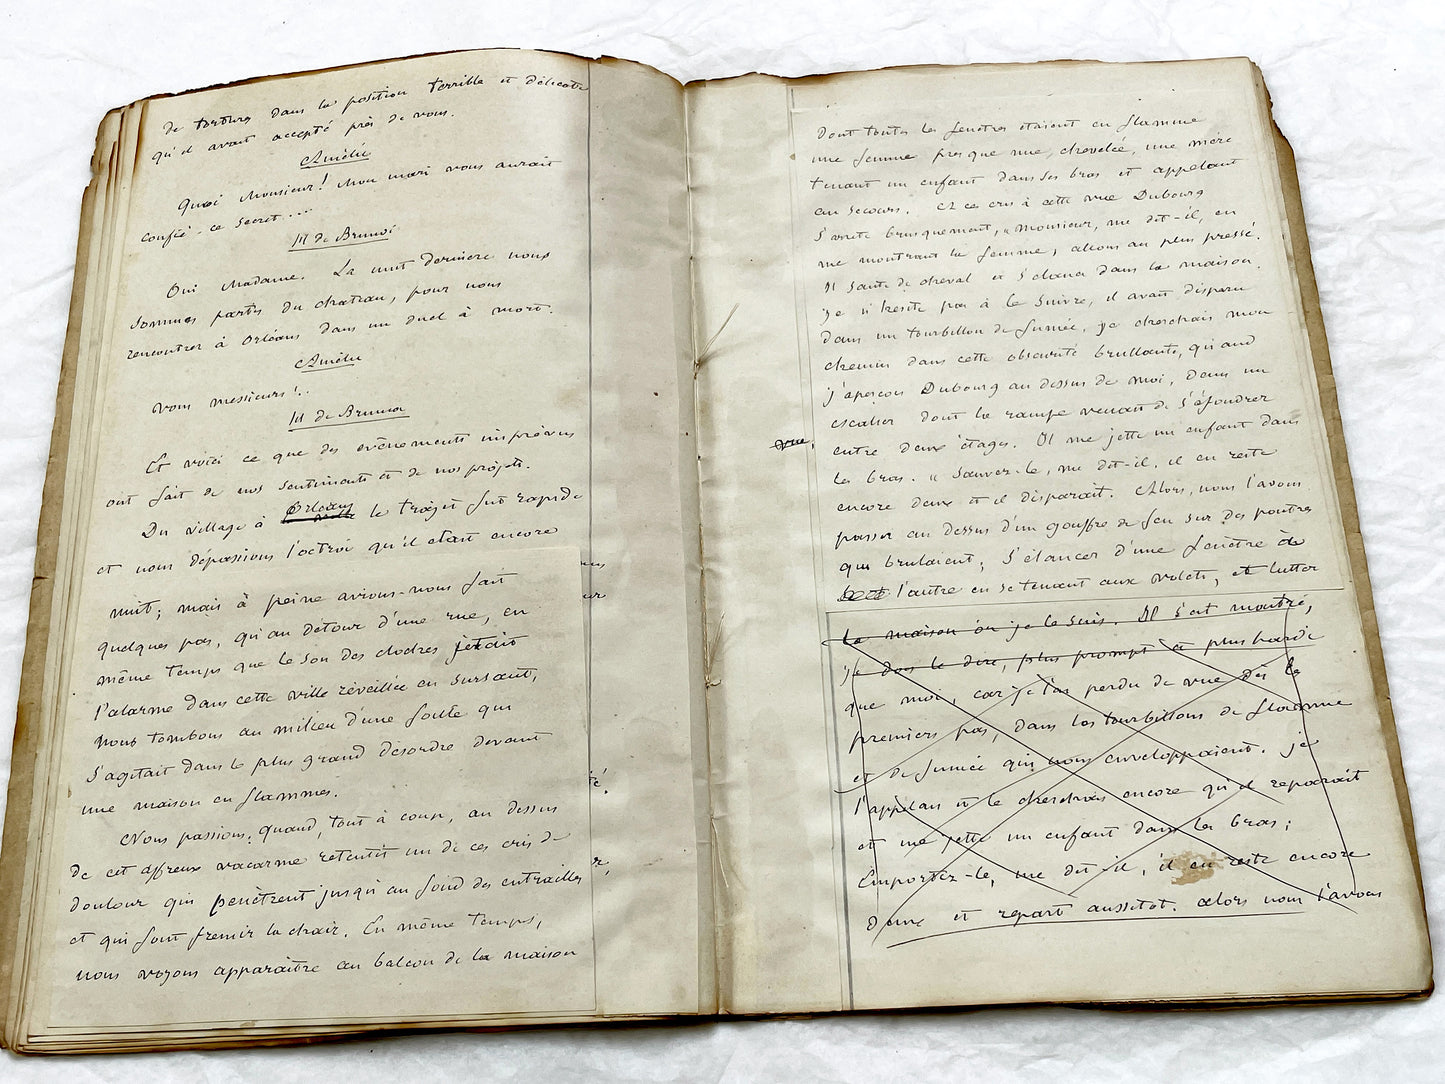 de torture dans la position terrible et délicate
qu'il avait accepté près de vous.
Amélie
Quoi Monsieur! Mon mari vous aurait
confié ce secret....
M de Brunoi
Oui Madame. La nuit dernière nous
sommes partis du chateau, pour nous
rencontrer à Orléans dans un duel à mort.
Amélie
Vous messieurs!..
M de Brunoi
Et voici ce que des évènements imprévus
ont fait de nos sentiments et de nos projets.
Du village à Orléans le trajet fut rapide
et nous dépassions l'octroi qu'il était encore
nuit; mais à peine avions-nous fait
quelques pas, qu'au détour d'une rue, en
même temps que le son des cloches jetait
l'alarme dans cette ville réveillée en sursaut,
nous tombons au milieu d'une foule qui
s'agitait dans le plus grand désordre devant
une maison en flammes.
Nous passions, quand, tout à coup, au dessus
de cet affreux vacarme retentit un de ces cris de
douleur qui pénètrent jusqu'au fond des entrailles
et qui font frémir la chair. En même temps,
nous voyons apparaître au balcon de la maison
dont toutes les fenêtres étaient en flamme
une femme presque nue, chevelée, une mère
tenant un enfant dans ses bras et appelant
au secours. A ce cris à cette vue Dubourg
s'arrête brusquement, "Monsieur, me dit-il, en
me montrant la femme, allons au plus pressé.
Il saute de cheval et s'élance dans la maison
je n'hésite pas à le suivre, il avait disparu
dans un tourbillon de fumée, je cherchais mon
chemin dans cette obscurité brullante, quand
j'aperçois Dubourg au dessus de moi, dans un
escalier dont la rampe venait de s'éfondrer
entre deux étages. Il me jette un enfant dans
les bras. "Sauvez-le, me dit-il, il en reste
encore deux et il disparait. Alors, nous l'avons
passer au dessus d'un gouffre de feu sur des poutres
qui brulaient, s'élancer d'une fenêtre à
l'autre en se tenant aux volets, et lutter
vue,
la maison où je le suis. Il s'est montré,
je dois le dire, plus prompt et plus hardi
que moi, car je l'ai perdu de vue dès les
premiers pas, dans les tourbillons de flamme
et de fumée qui nous enveloppaient. je
l'appelais et le cherchais encore qu'il reparait
et me jette un enfant dans les bras;
Emportez-le, me dit-il, il en reste encore
deux et repart aussitot. alors nous l'avons